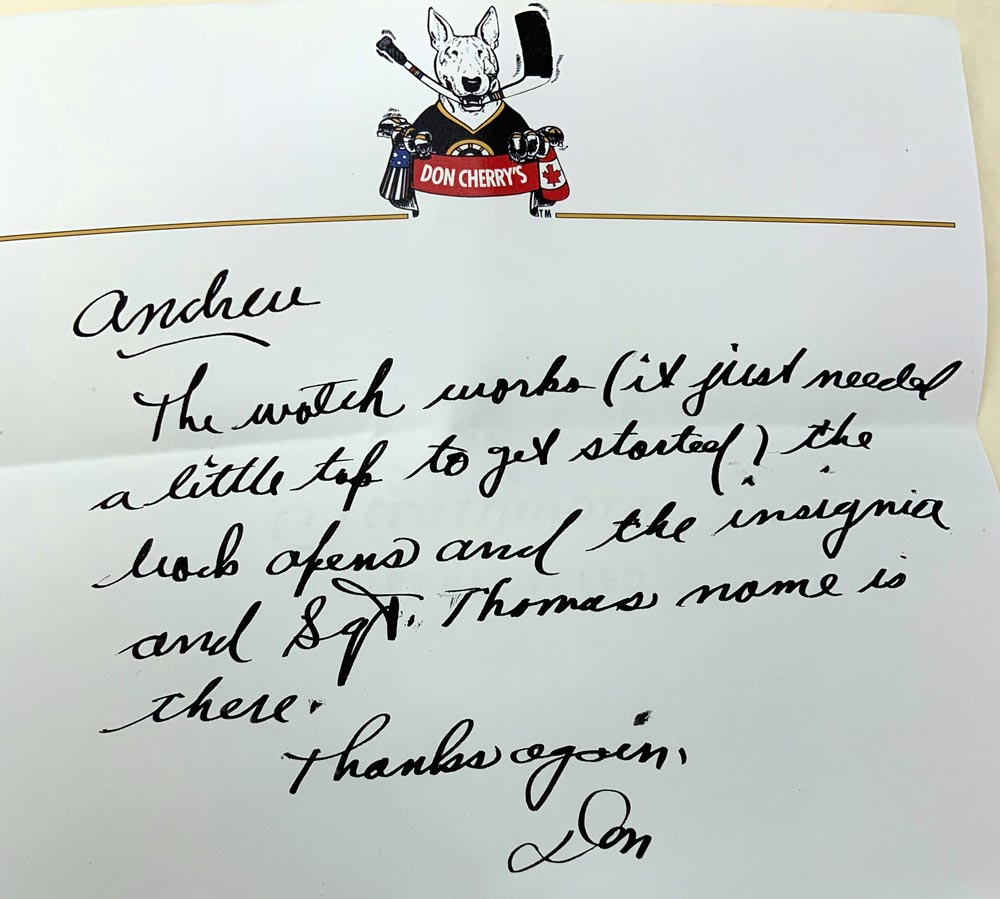 DON CHERRY'S
TM
Andrew
The watch works (it just needed
a little tap to get started) the
back opens and the insignia
and Sgt. Thomas name is
there.
Thanks again.
Don